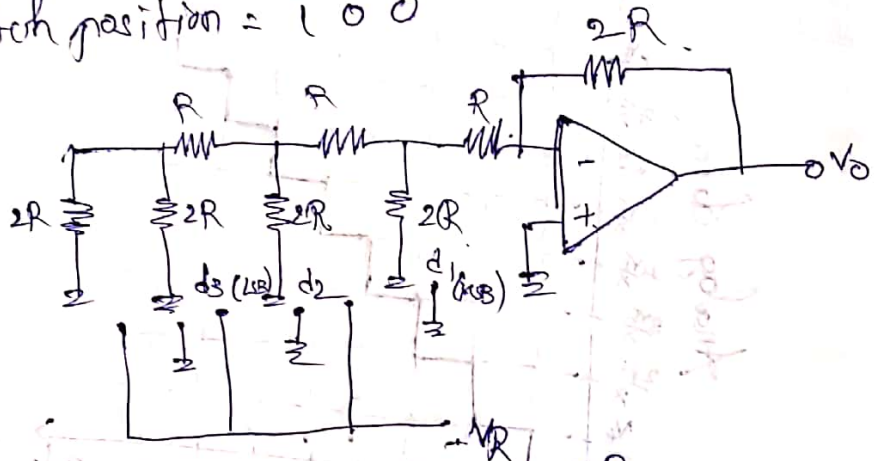 position = 1 0 0
2R
R
R
R
2R
2R
2R
2R
-
+
Vo
d3 (LSB)
d2
d1 (MSB)
-VR